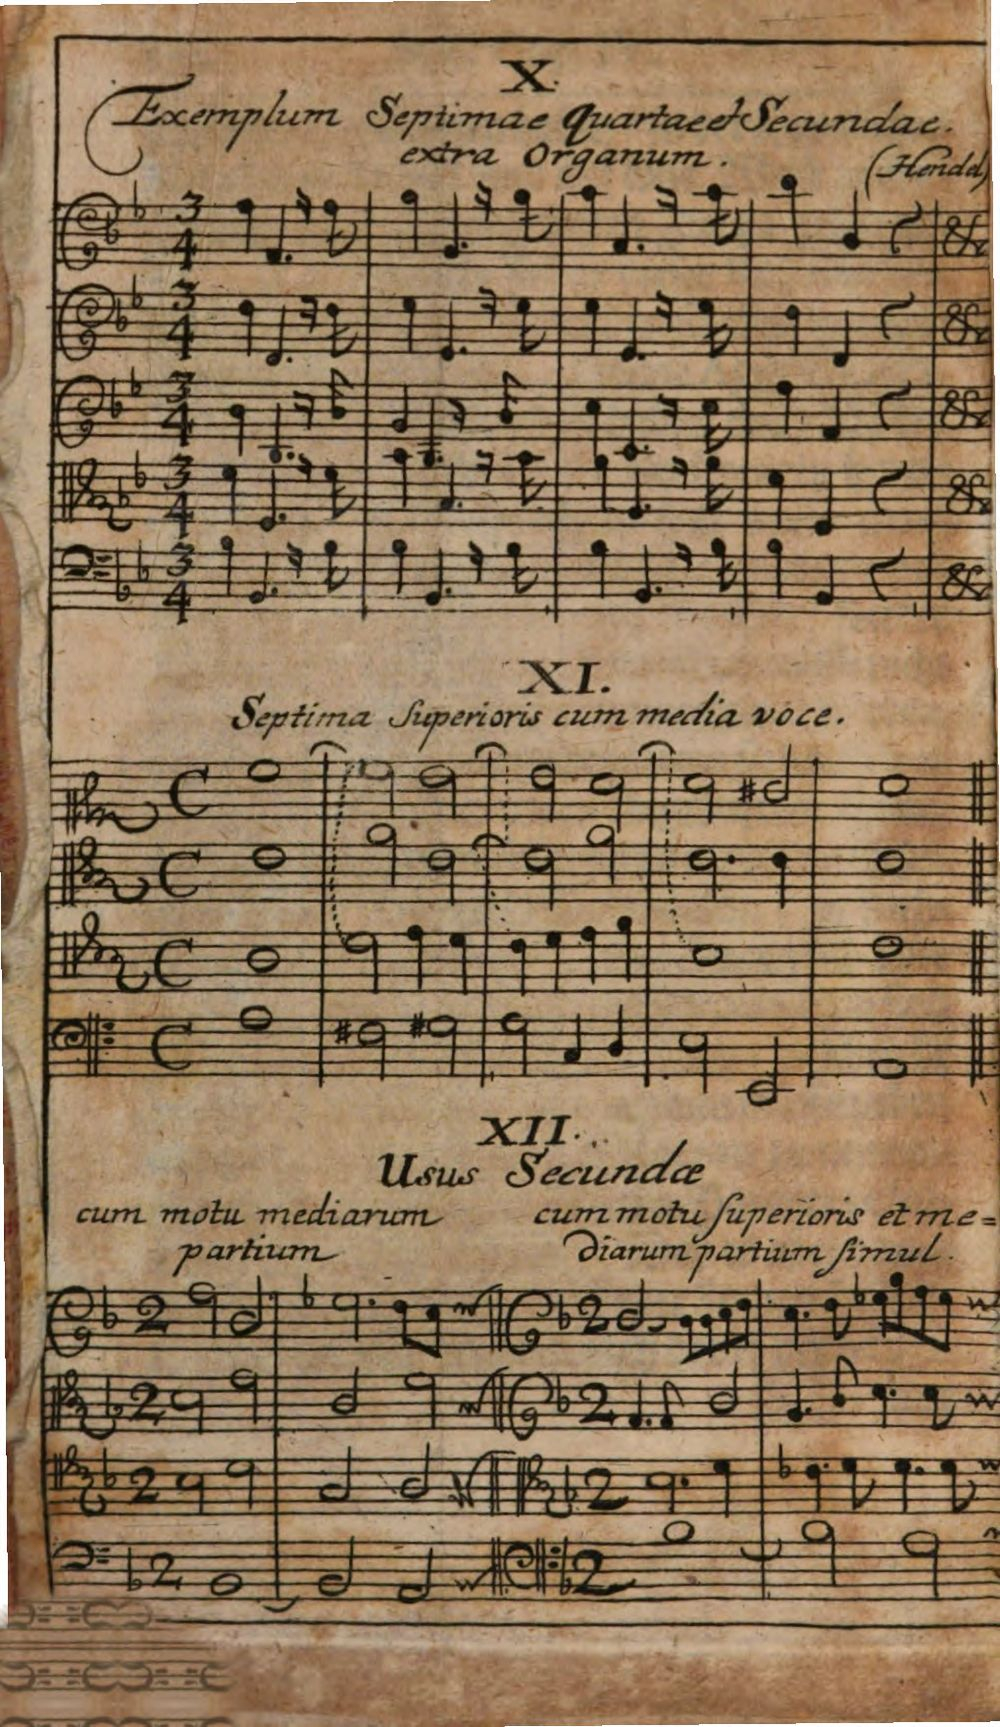 X.
Exemplum Septimae Quartae et Secundae.
extra Organum.
(Hendel)
3 4
3 4
3 4
3 4
3 4
XI.
Septima superioris cum media voce.
C
C
C
C
XII.
Usus Secundæ
cum motu mediarum
partium
cum motu superioris et me=
diarum partium simul.
2 2
2 2
2 2
2 2